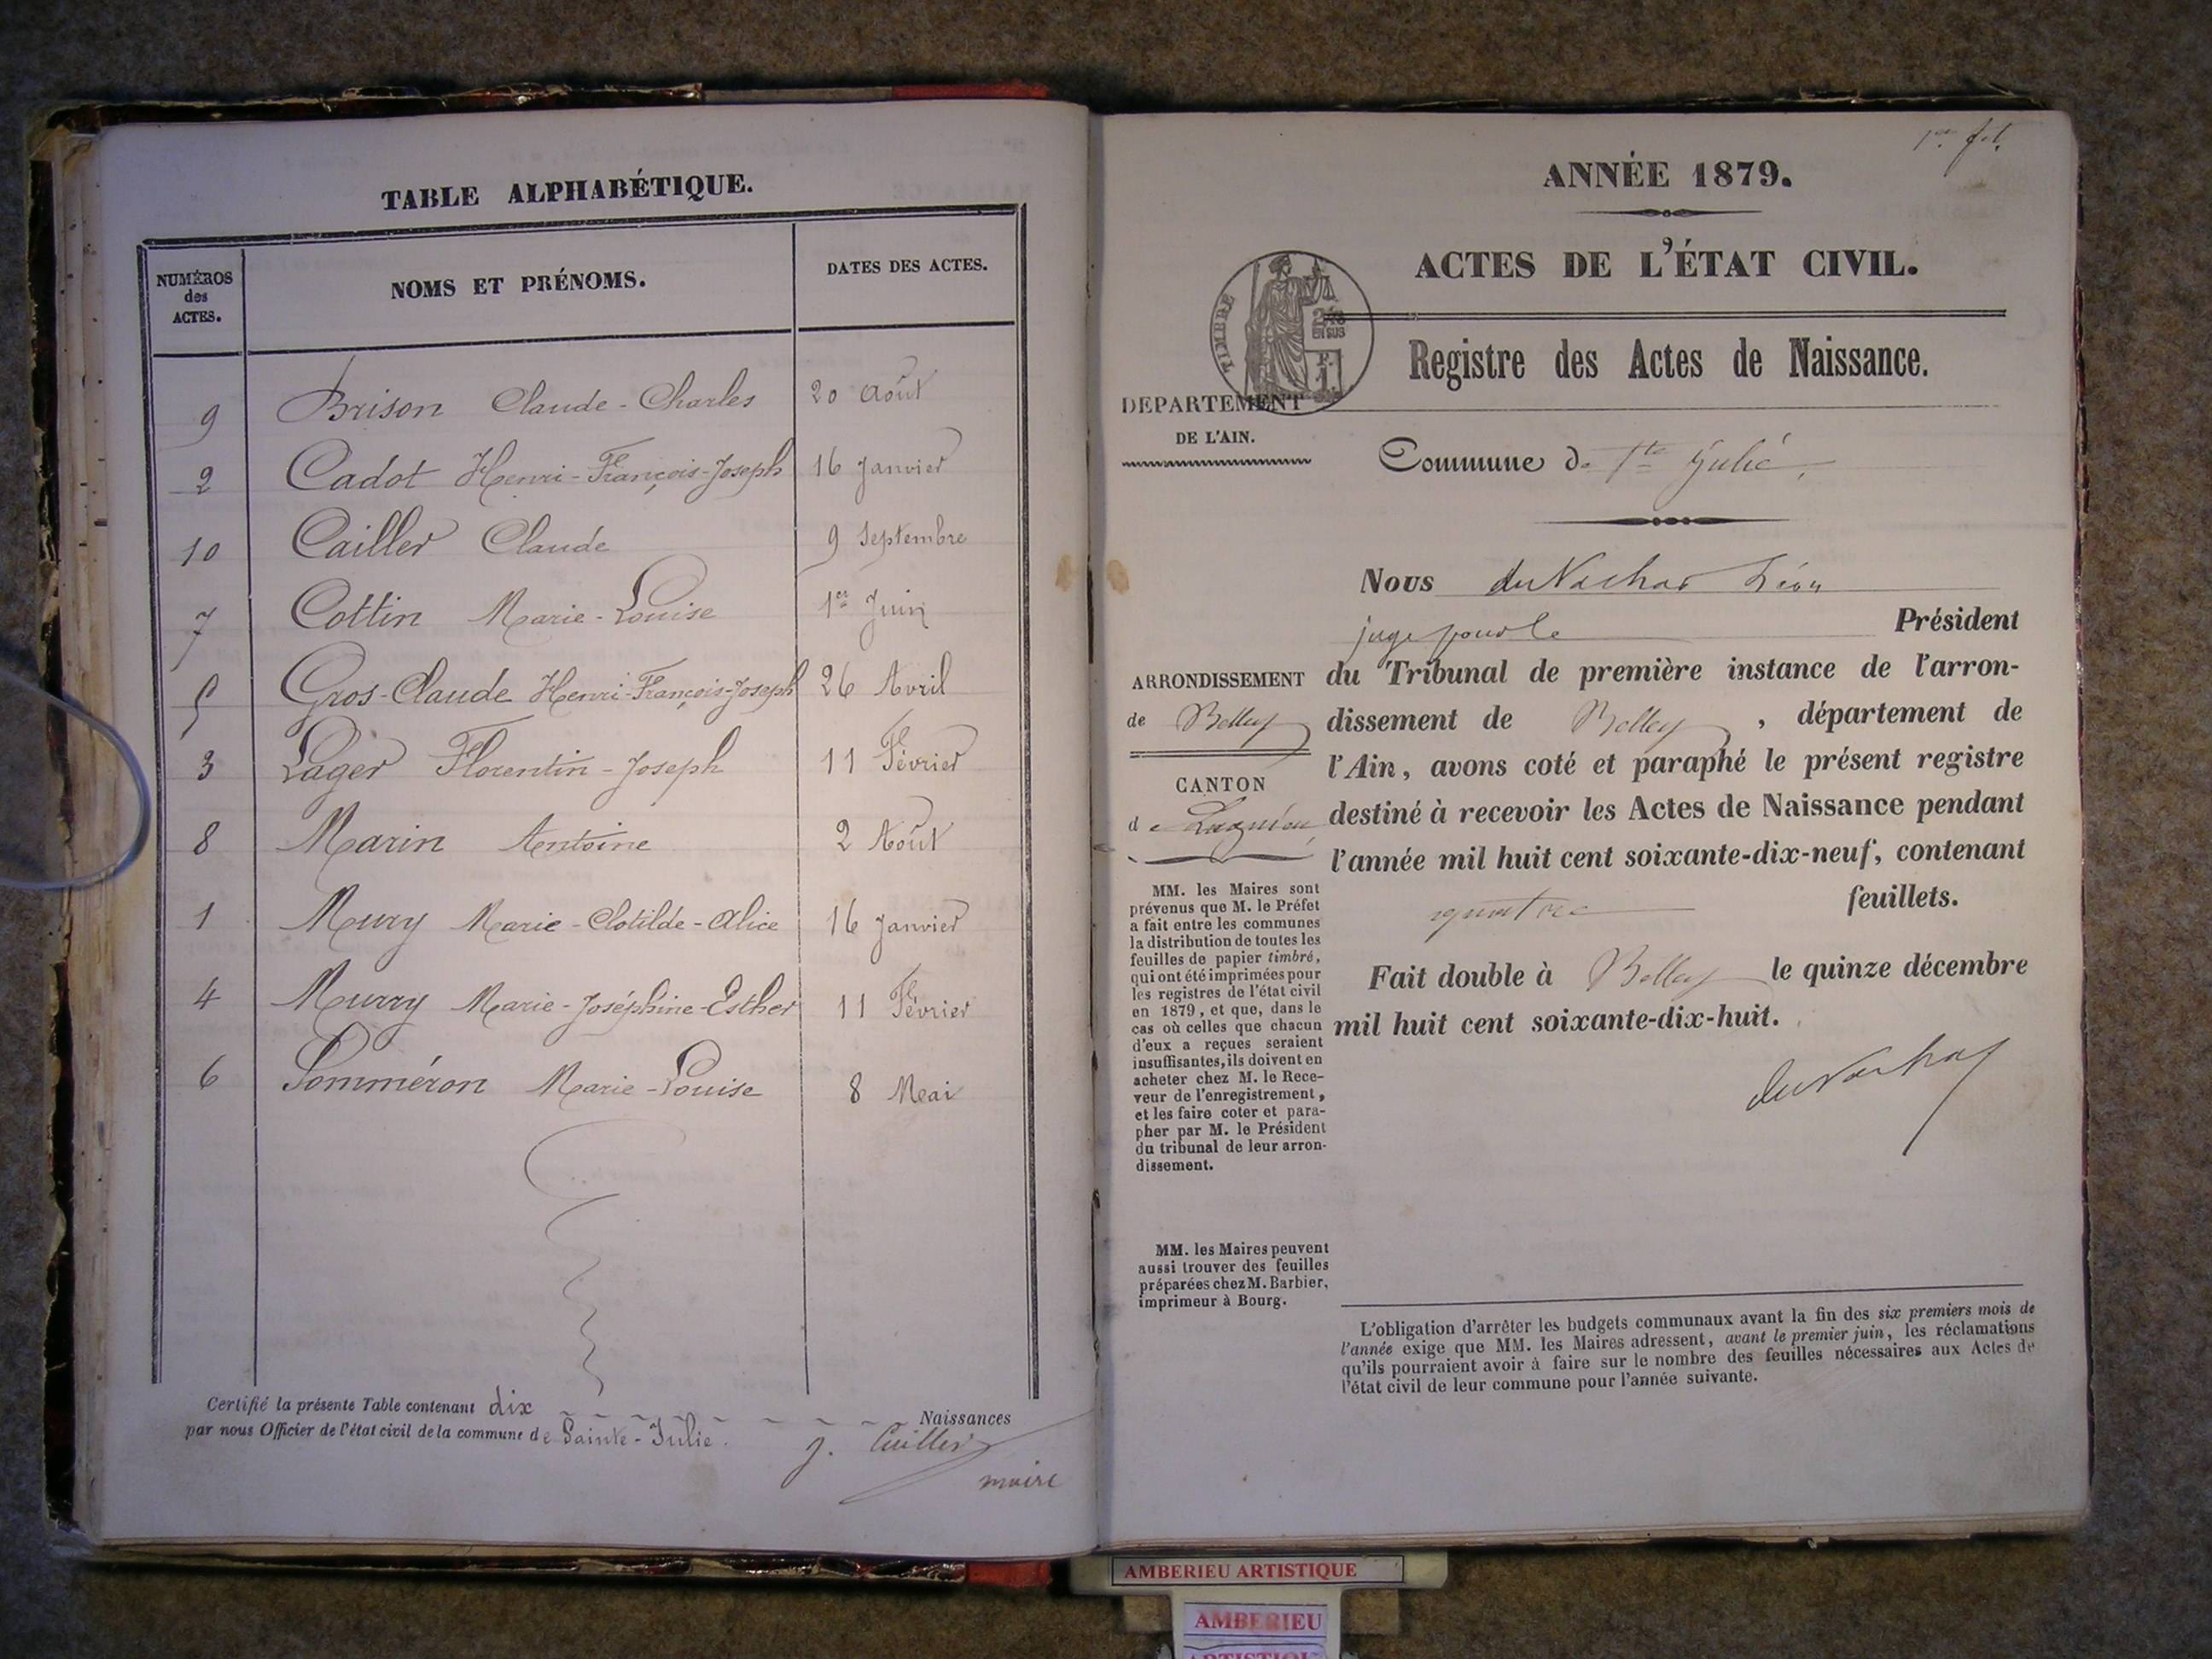 TABLE ALPHABÉTIQUE.
NUMÉROS des ACTES.
NOMS ET PRÉNOMS.
DATES DES ACTES.
9 Brison Claude-Charles 20 Août
2 Cadot Henri-François-Joseph 16 Janvier
10 Cailler Claude 9 Septembre
7 Cottin Marie-Louise 1er Juin
5 Gros-Claude Henri-François-Joseph 26 Avril
3 Lager Florentin-Joseph 11 Février
8 Marin Antoine 2 Août
1 Mury Marie-Clotilde-Alice 16 Janvier
4 Murry Marie-Joséphine-Esther 11 Février
6 Somméron Marie-Louise 8 Mai
Certifié la présente Table contenant dix Naissances
par nous Officier de l'état civil de la commune de Sainte-Julie.
J. Cailler
maire
1er fol.
ANNÉE 1879.
ACTES DE L'ÉTAT CIVIL.
TIMBRE
2/10
EN SUS
F.
1.
Registre des Actes de Naissance.
DEPARTEMENT
DE L'AIN.
Commune de Ste Julie,
Nous du Nachar Léon
juge pour le Président
du Tribunal de première instance de l'arron-
dissement de Belley, département de
l'Ain, avons coté et paraphé le présent registre
destiné à recevoir les Actes de Naissance pendant
l'année mil huit cent soixante-dix-neuf, contenant
quatorze feuillets.
Fait double à Belley le quinze décembre
mil huit cent soixante-dix-huit.
du Nachar
ARRONDISSEMENT
de Belley
CANTON
de Lagnieu
MM. les Maires sont
prévenus que M. le Préfet
a fait entre les communes
la distribution de toutes les
feuilles de papier timbré,
qui ont été imprimées pour
les registres de l'état civil
en 1879, et que, dans le
cas où celles que chacun
d'eux a reçues seraient
insuffisantes, ils doivent en
acheter chez M. le Rece-
veur de l'enregistrement,
et les faire coter et para-
pher par M. le Président
du tribunal de leur arron-
dissement.
MM. les Maires peuvent
aussi trouver des feuilles
préparées chez M. Barbier,
imprimeur à Bourg.
L'obligation d'arrêter les budgets communaux avant la fin des six premiers mois de
l'année exige que MM. les Maires adressent, avant le premier juin, les réclamations
qu'ils pourraient avoir à faire sur le nombre des feuilles nécessaires aux Actes de
l'état civil de leur commune pour l'année suivante.
AMBERIEU ARTISTIQUE
AMBERIEU
ARTISTIQUE